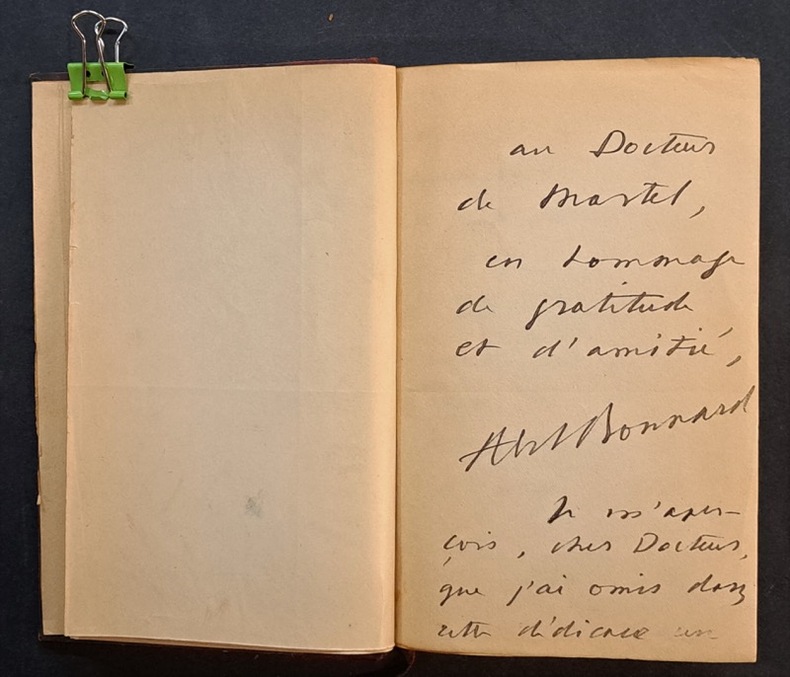 au Docteur
de Martel,
en hommage
de gratitude
et d'amitié,
Abel Bonnard
Je m'aper-
çois, cher Docteur,
que j'ai omis dans
cette dédicace un